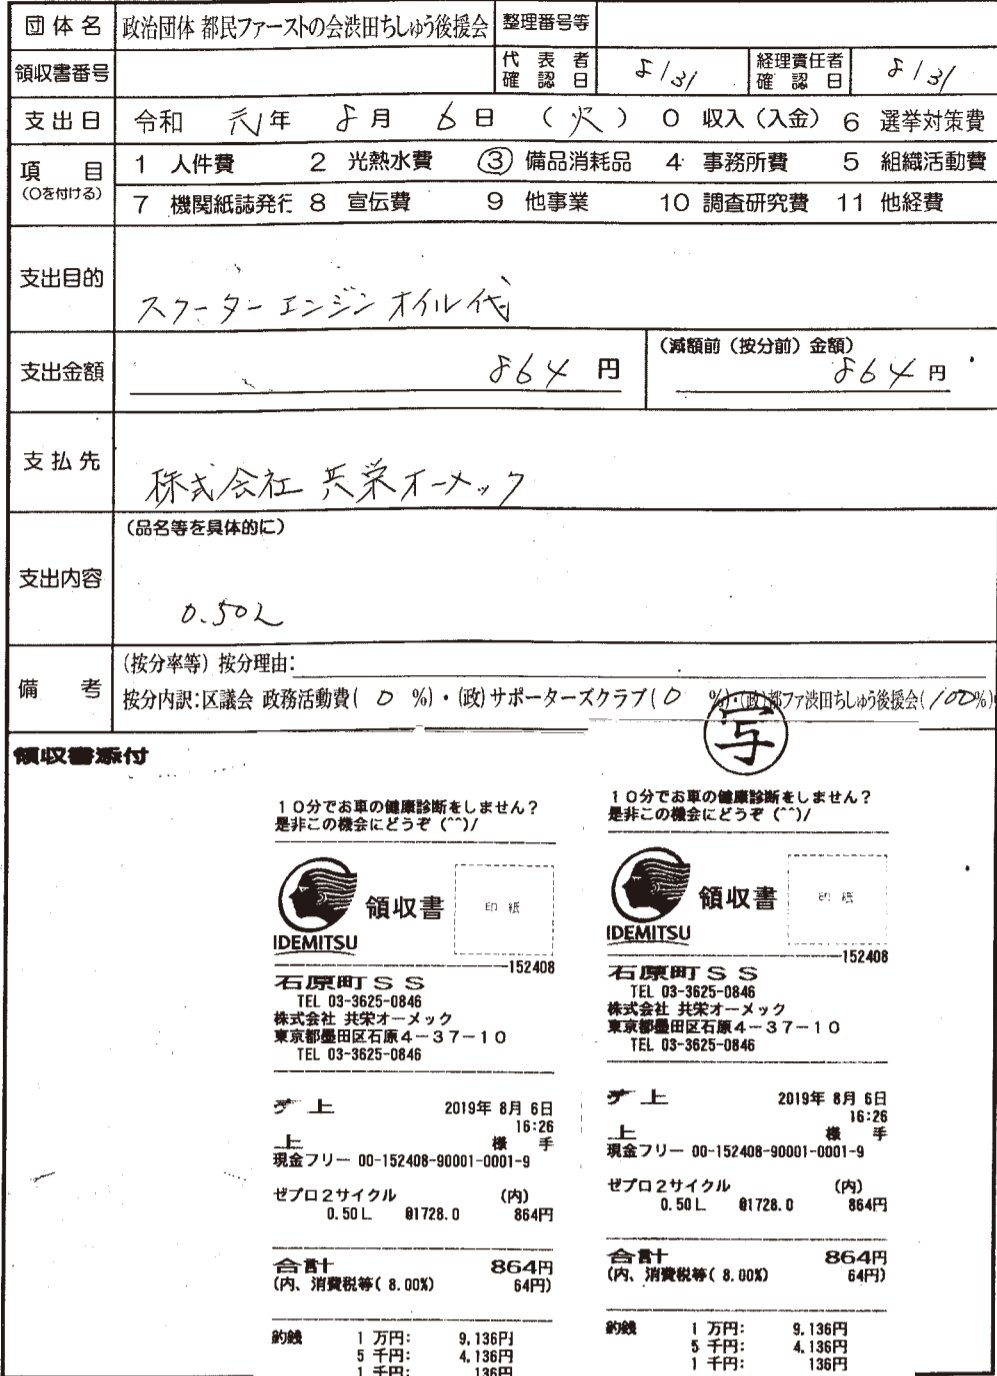 団体名 政治団体 都民ファーストの会渋田ちしゅう後援会 整理番号等
領収書番号 代表者確認日 8/31 経理責任者確認日 8/31
支出日 令和 元年 8月 6日 (火) 0 収入(入金) 6 選挙対策費
項目 (○を付ける) 1 人件費 2 光熱水費 ③ 備品消耗品 4 事務所費 5 組織活動費
7 機関紙誌発行 8 宣伝費 9 他事業 10 調査研究費 11 他経費
支出目的 スクーターエンジンオイル代
支出金額 864 円 (減額前(按分前)金額) 864 円
支払先 株式会社 共栄オーメック
支出内容 (品名等を具体的に)
0.50L
備考 (按分率等) 按分理由:
按分内訳:区議会 政務活動費( 0 %)・(政)サポーターズクラブ( 0 %)・(政)都ファ渋田ちしゅう後援会(100%)
領収書添付
写
10分でお車の健康診断をしません?
是非この機会にどうぞ (^^)/
IDEMITSU
領収書
印紙
152408
石原町SS
TEL 03-3625-0846
株式会社 共栄オーメック
東京都墨田区石原4-37-10
TEL 03-3625-0846
上 2019年 8月 6日
16:26
上 様 手
現金フリー 00-152408-90001-0001-9
ゼプロ2サイクル (内)
0.50L @1728.0 864円
合計 864円
(内、消費税等( 8.00%) 64円)
釣銭 1 万円: 9,136円
5 千円: 4,136円
1 千円: 136円
10分でお車の健康診断をしません?
是非この機会にどうぞ (^^)/
IDEMITSU
領収書
印紙
152408
石原町SS
TEL 03-3625-0846
株式会社 共栄オーメック
東京都墨田区石原4-37-10
TEL 03-3625-0846
上 2019年 8月 6日
16:26
上 様 手
現金フリー 00-152408-90001-0001-9
ゼプロ2サイクル (内)
0.50L @1728.0 864円
合計 864円
(内、消費税等( 8.00%) 64円)
釣銭 1 万円: 9,136円
5 千円: 4,136円
1 千円: 136円